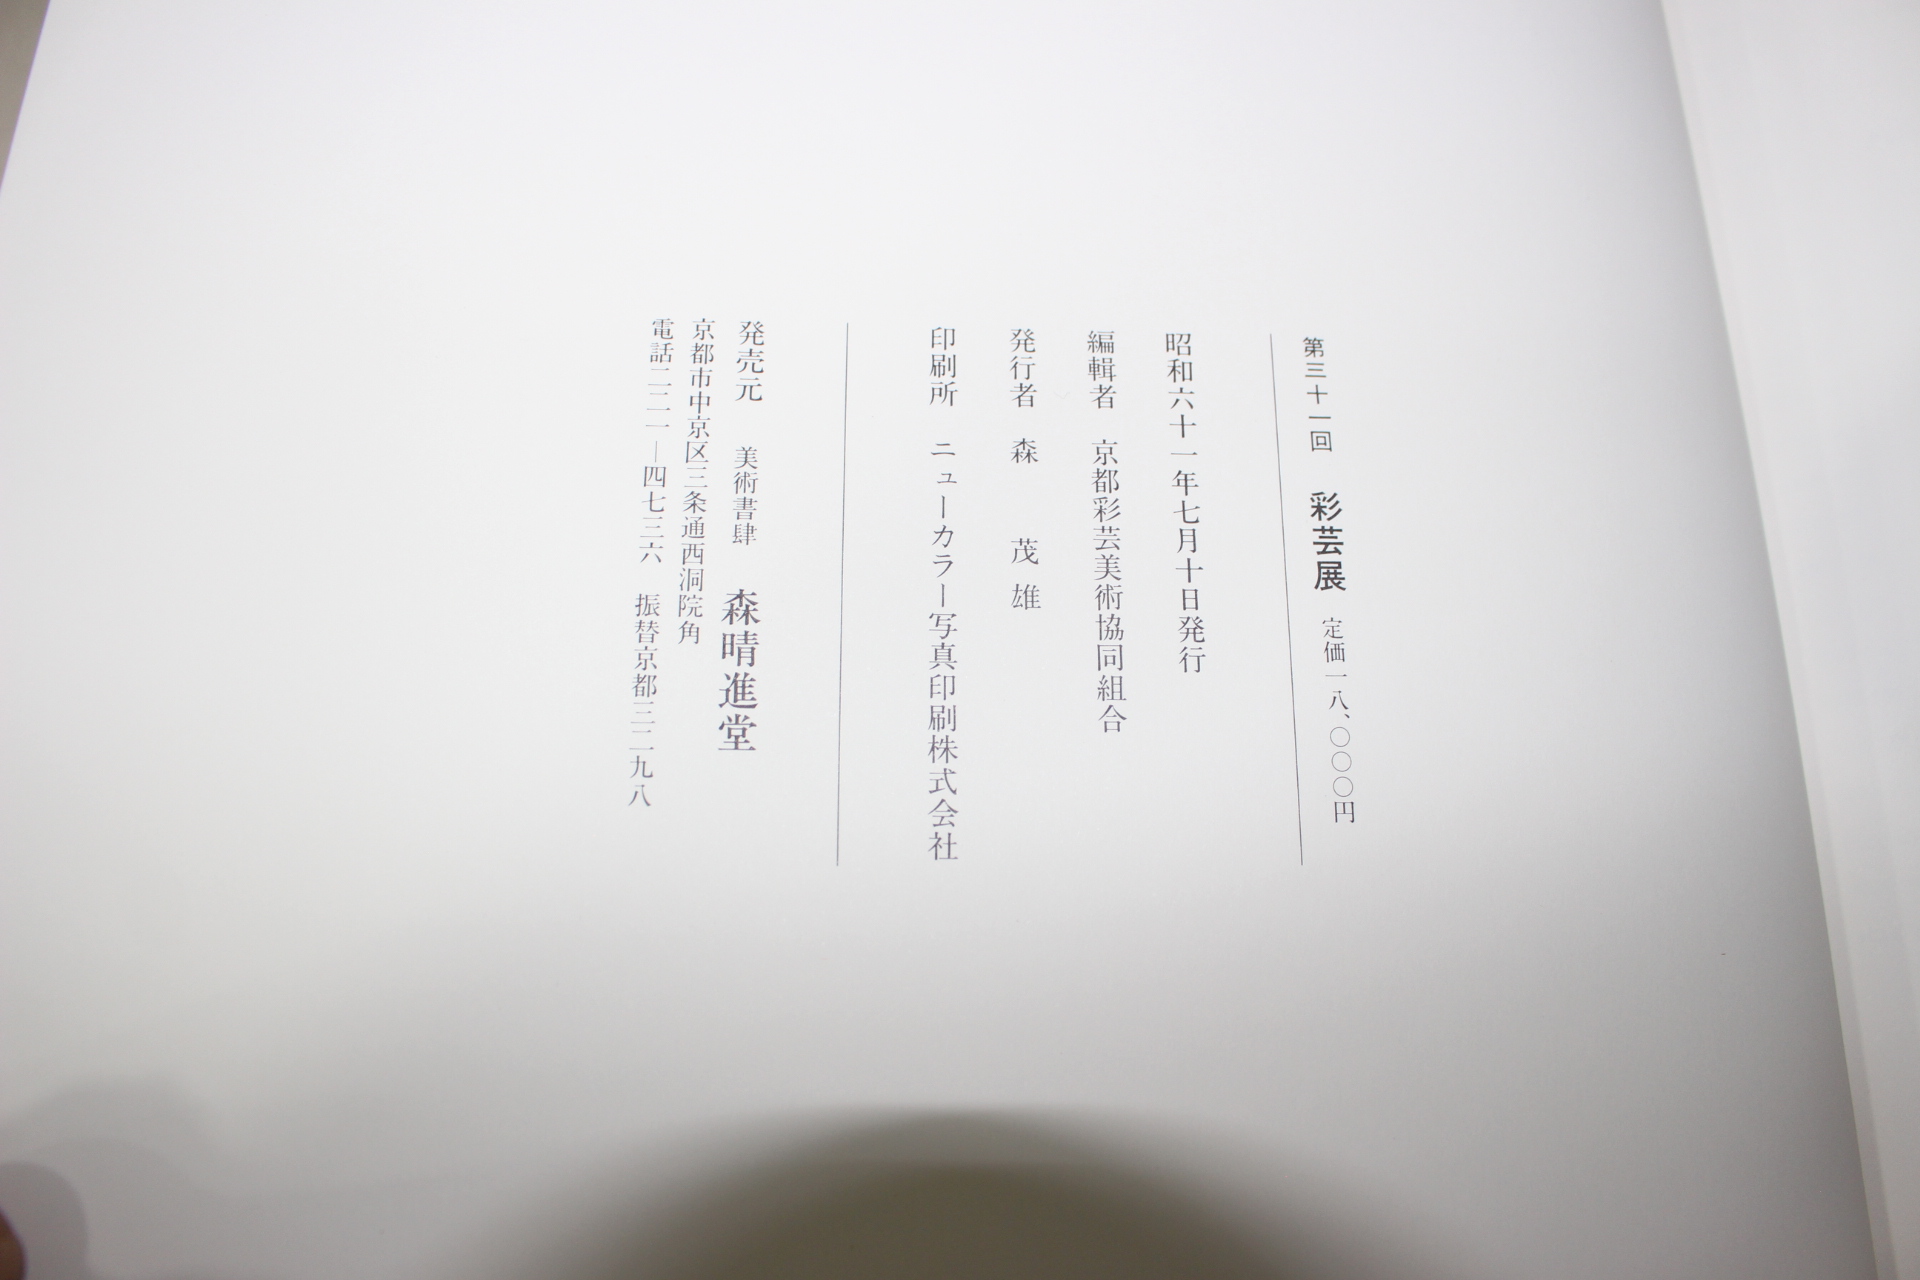 第三十一回 彩芸展 定価一八、〇〇〇円
昭和六十一年七月十日発行
編輯者 京都彩芸美術協同組合
発行者 森 茂雄
印刷所 ニューカラー写真印刷株式会社
発売元 美術書肆 森晴進堂
京都市中京区三条通西洞院角
電話二二一―四七三六 振替京都三二九八